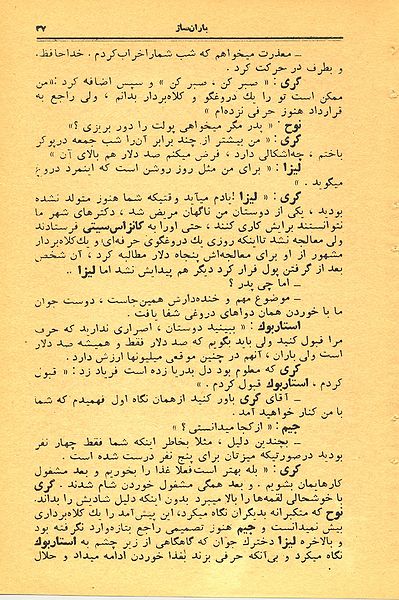 باران‌ساز ۳۷
ــ معذرت میخواهم که شب شما را خراب کردم . خداحافظ.
و بطرف در حرکت کرد .
گری : « صبر کن ، صبر کن » و سپس اضافه کرد : «من
ممکن است تو را یك دروغگو و کلاه‌بردار بدانم ، ولی راجع به
قرارداد هنوز حرفی نزده‌ام »
نوح : « پدر مگر میخواهی پولت را دور بریزی ؟»
گری : « من بیشتر از چند برابر آن‌را شب جمعه درپوکر
باختم ، چه‌اشکالی دارد ، فرض میکنم صد دلار هم بالای آن »
لیزا : « برای من مثل روز روشن است که اینمرد دروغ
میگوید . »
گری : « لیزا !یادم میآید وقتیکه شما هنوز متولد نشده
بودید ، یکی از دوستان من ناگهان مریض شد ، دکترهای شهر ما
نتوانستند برایش کاری کنند ، حتی اورا به کانزاس‌سیتی فرستادند
ولی معالجه نشد تااینکه روزی یك دروغگوی حرفه‌ای و یك‌کلاه‌بردار
مشهور از او برای معالجه‌اش پنجاه دلار مطالبه کرد ، آن شخص
بعد از گرفتن پول فرار کرد دیگر هم پیدایش نشد اما لیزا ..
ــ اما چی پدر ؟
ــ موضوع مهم و خنده‌دارش همین‌جاست ، دوست جوان
ما با خوردن همان دواهای دروغی شفا یافت .
استاربوك : « ببینید دوستان ، اصراری ندارید که حرف
مرا قبول کنید ولی باید بگویم که صد دلار فقط و همیشه صد دلار
است ولی باران ، آنهم در چنین موقعی میلیونها ارزش دارد .
گری که معلوم بود دل بدریا زده است فریاد زد : « قبول
کردم ، استاربوك قبول کردم . »
ــ آقای گری باور کنید ازهمان نگاه اول فهمیدم که شما
با من کنار خواهید آمد .
جیم : « ازکجا میدانستی ؟ »
ــ بچندین دلیل ، مثلا بخاطر اینکه شما فقط چهار نفر
بودید درصورتیکه میزتان برای پنج نفر درست شده است .
گری : « بله بهتر است‌فعلا غذا را بخوریم و بعد مشغول
کارهایمان بشویم . و بعد همگی مشغول خوردن شام شدند . گری
با خوشحالی لقمه‌ها را بالا میبرد بدون اینکه دلیل شادیش را بداند.
نوح که متکبرانه بدیگران نگاه میکرد، این پیش‌آمد را یك کلاه‌برداری
بیش نمیدانست و جیم هنوز تصمیمی راجع بتازه‌وارد نگرفته بود
و بالاخره لیزا دخترك جوان که گاهگاهی از زیر چشم به استاربوك
نگاه میکرد و بی‌آنکه حرفی بزند بغذا خوردن ادامه میداد و حلال